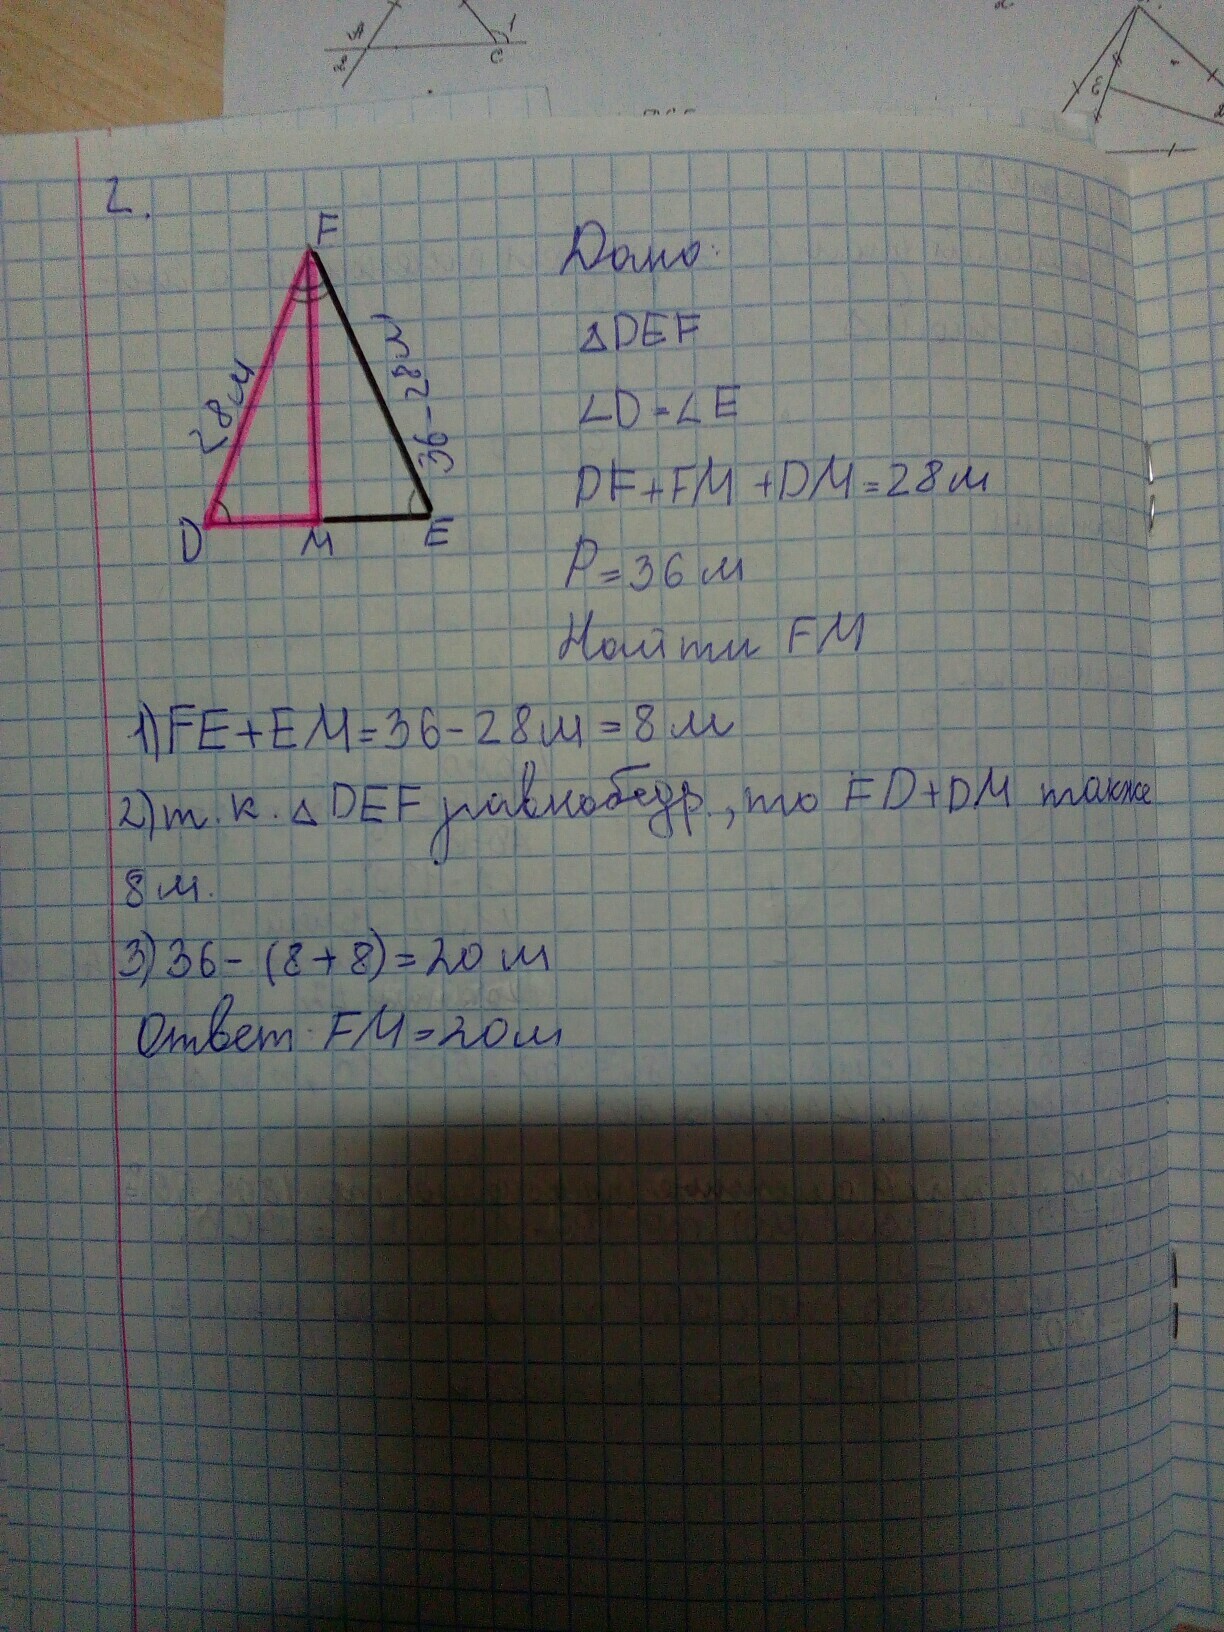 A
2
1
C
E
2.
F
28м
36-28м
D
M
E
Дано:
△DEF
∠D=∠E
DF+FM+DM=28м
P=36м
Найти FM
1) FE+EM=36-28м=8м
2) т.к. △DEF равнобедр., то FD+DM также
8м.
3) 36-(8+8)=20м
Ответ: FM=20м